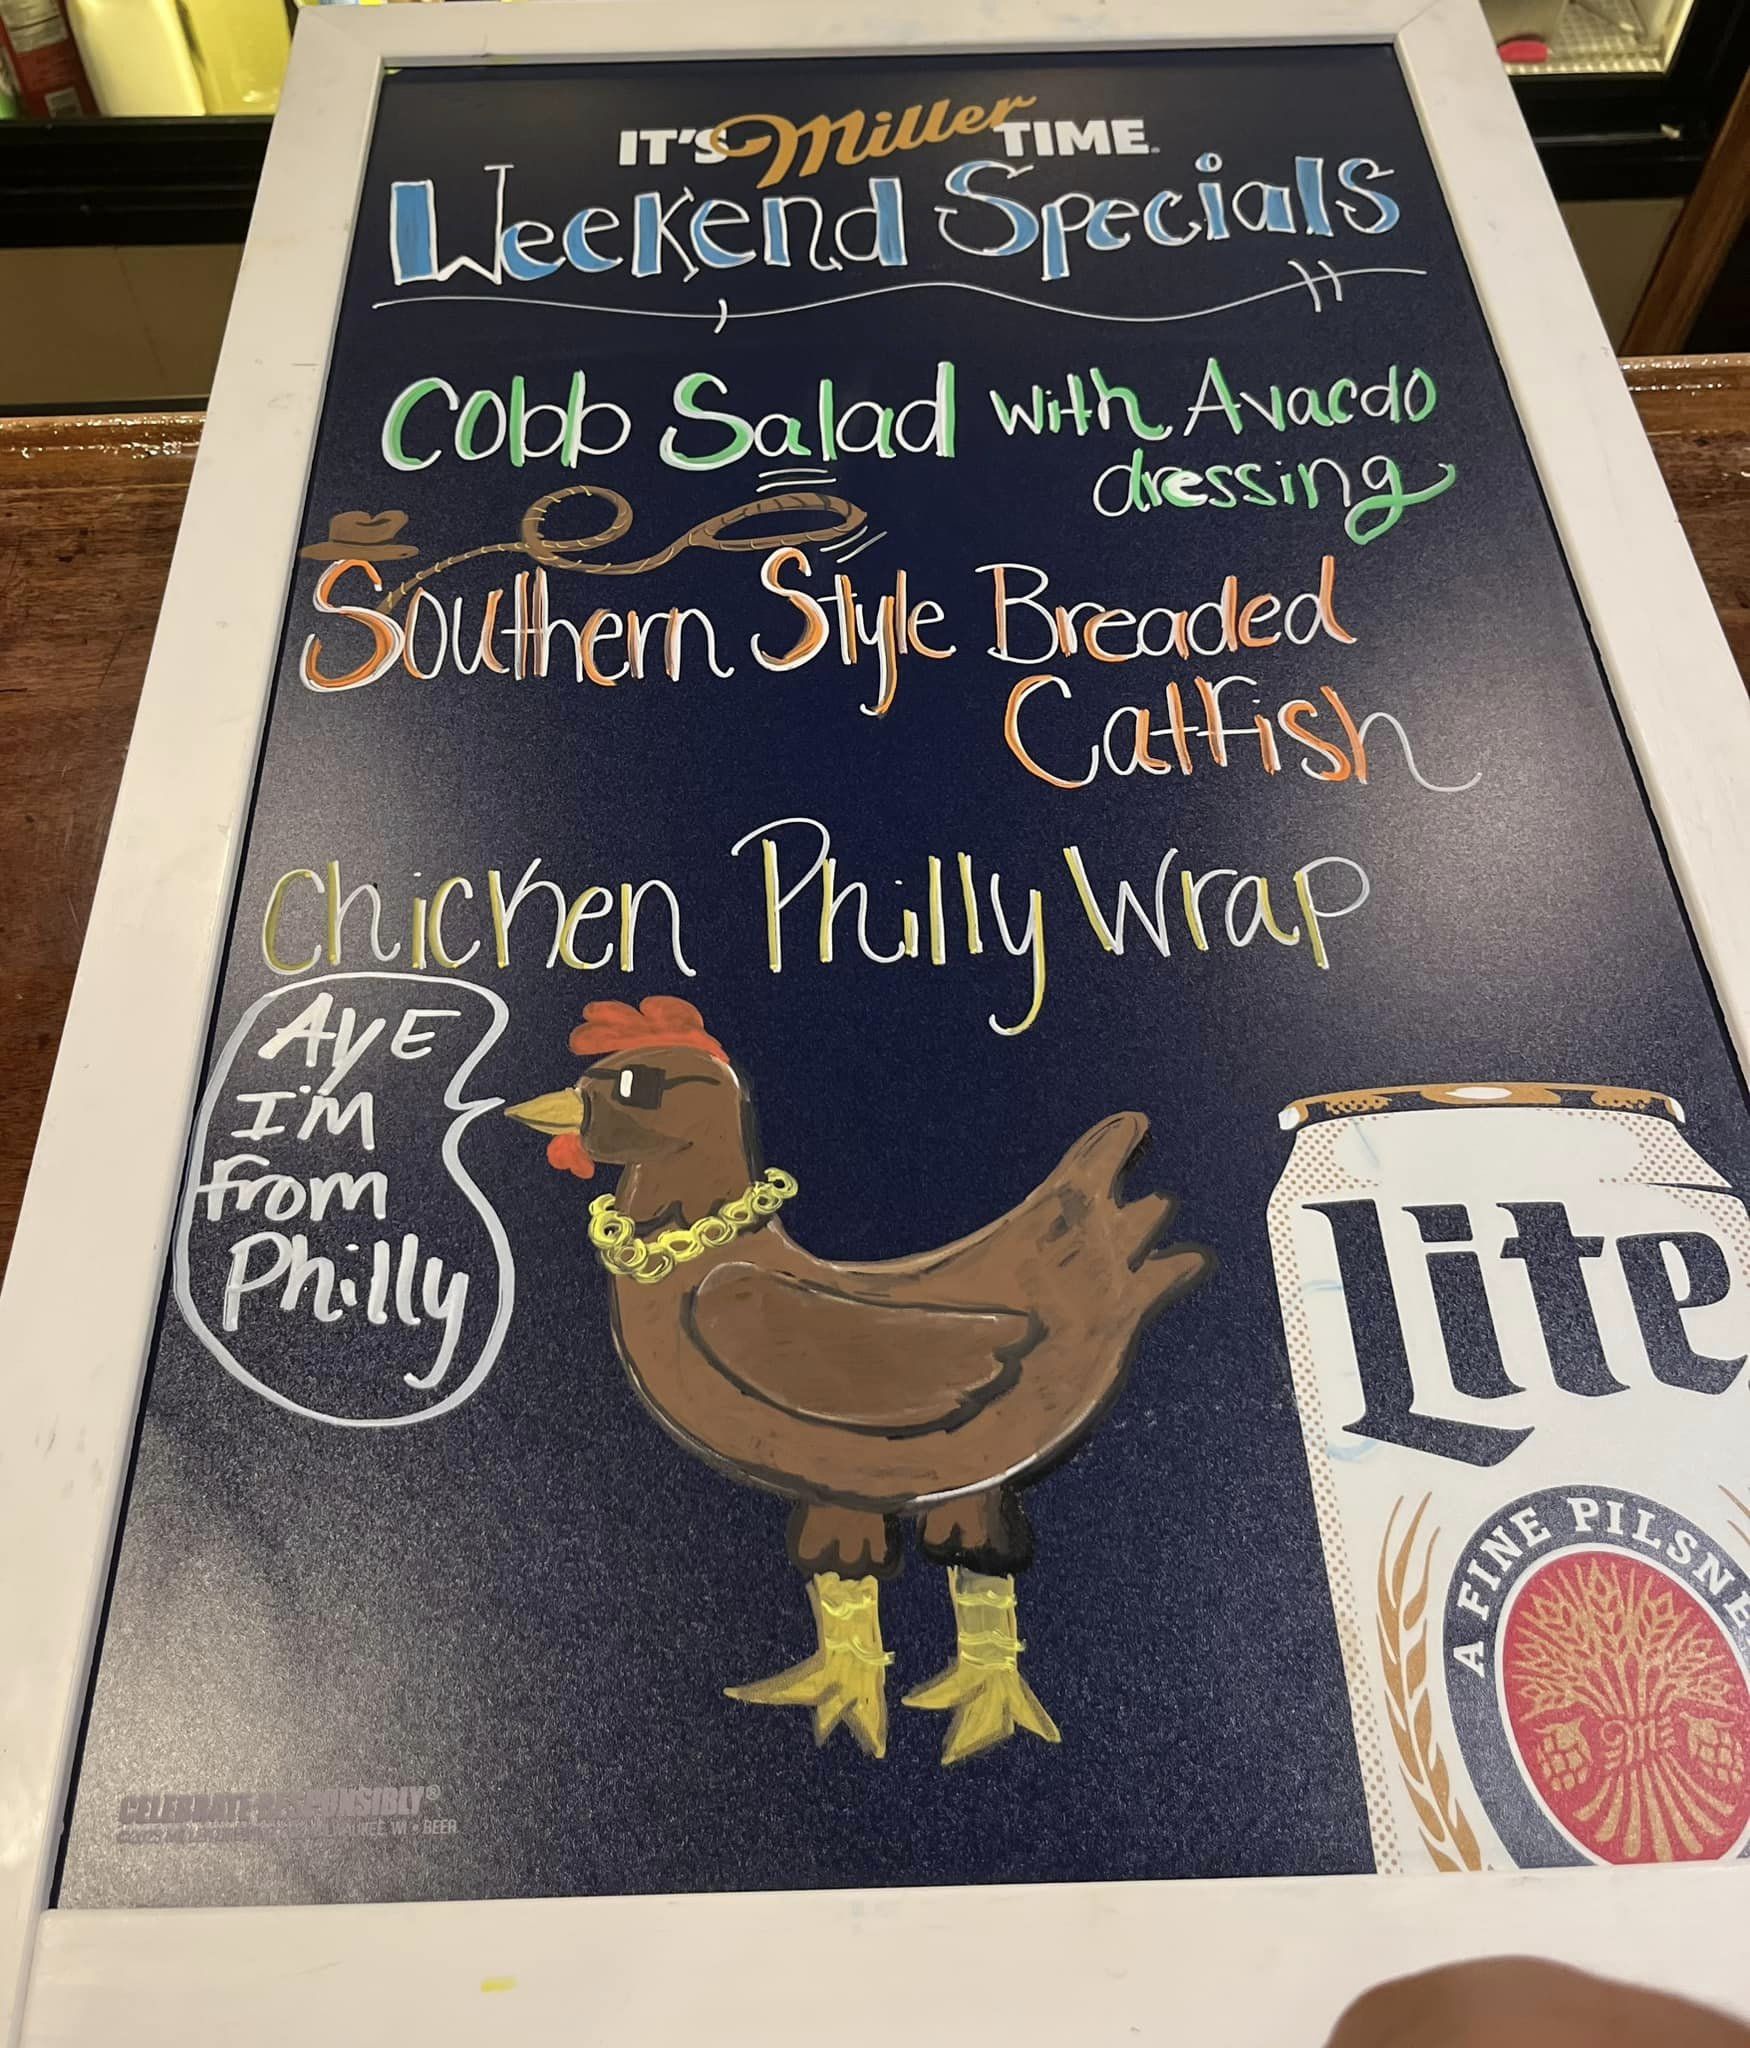 IT'S Miller TIME.
Weekend Specials
Cobb Salad with Avacdo
dressing
Southern Style Breaded
Catfish
Chicken Philly Wrap
AyE
I'm
from
Philly
Lite
A FINE PILSNE
CELEBRATE RESPONSIBLY®
WI • BEER